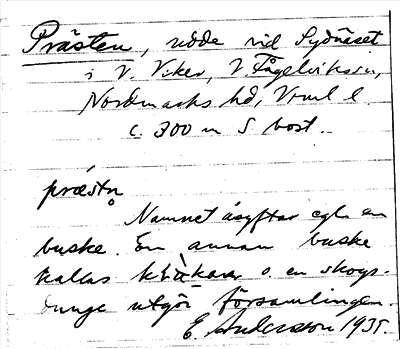 Prästen, udde vid Sydnäset
i V. Viker, V. Fågelviks sn,
Nordmarks hd, Vrml l.
c. 300 m S bost.
præstn̥
Namnet åsyftar egl. en
buske. En annan buske
kallas klåkarn o. en skogs-
dunge utgör församlingen.
E. Andersson 1935.